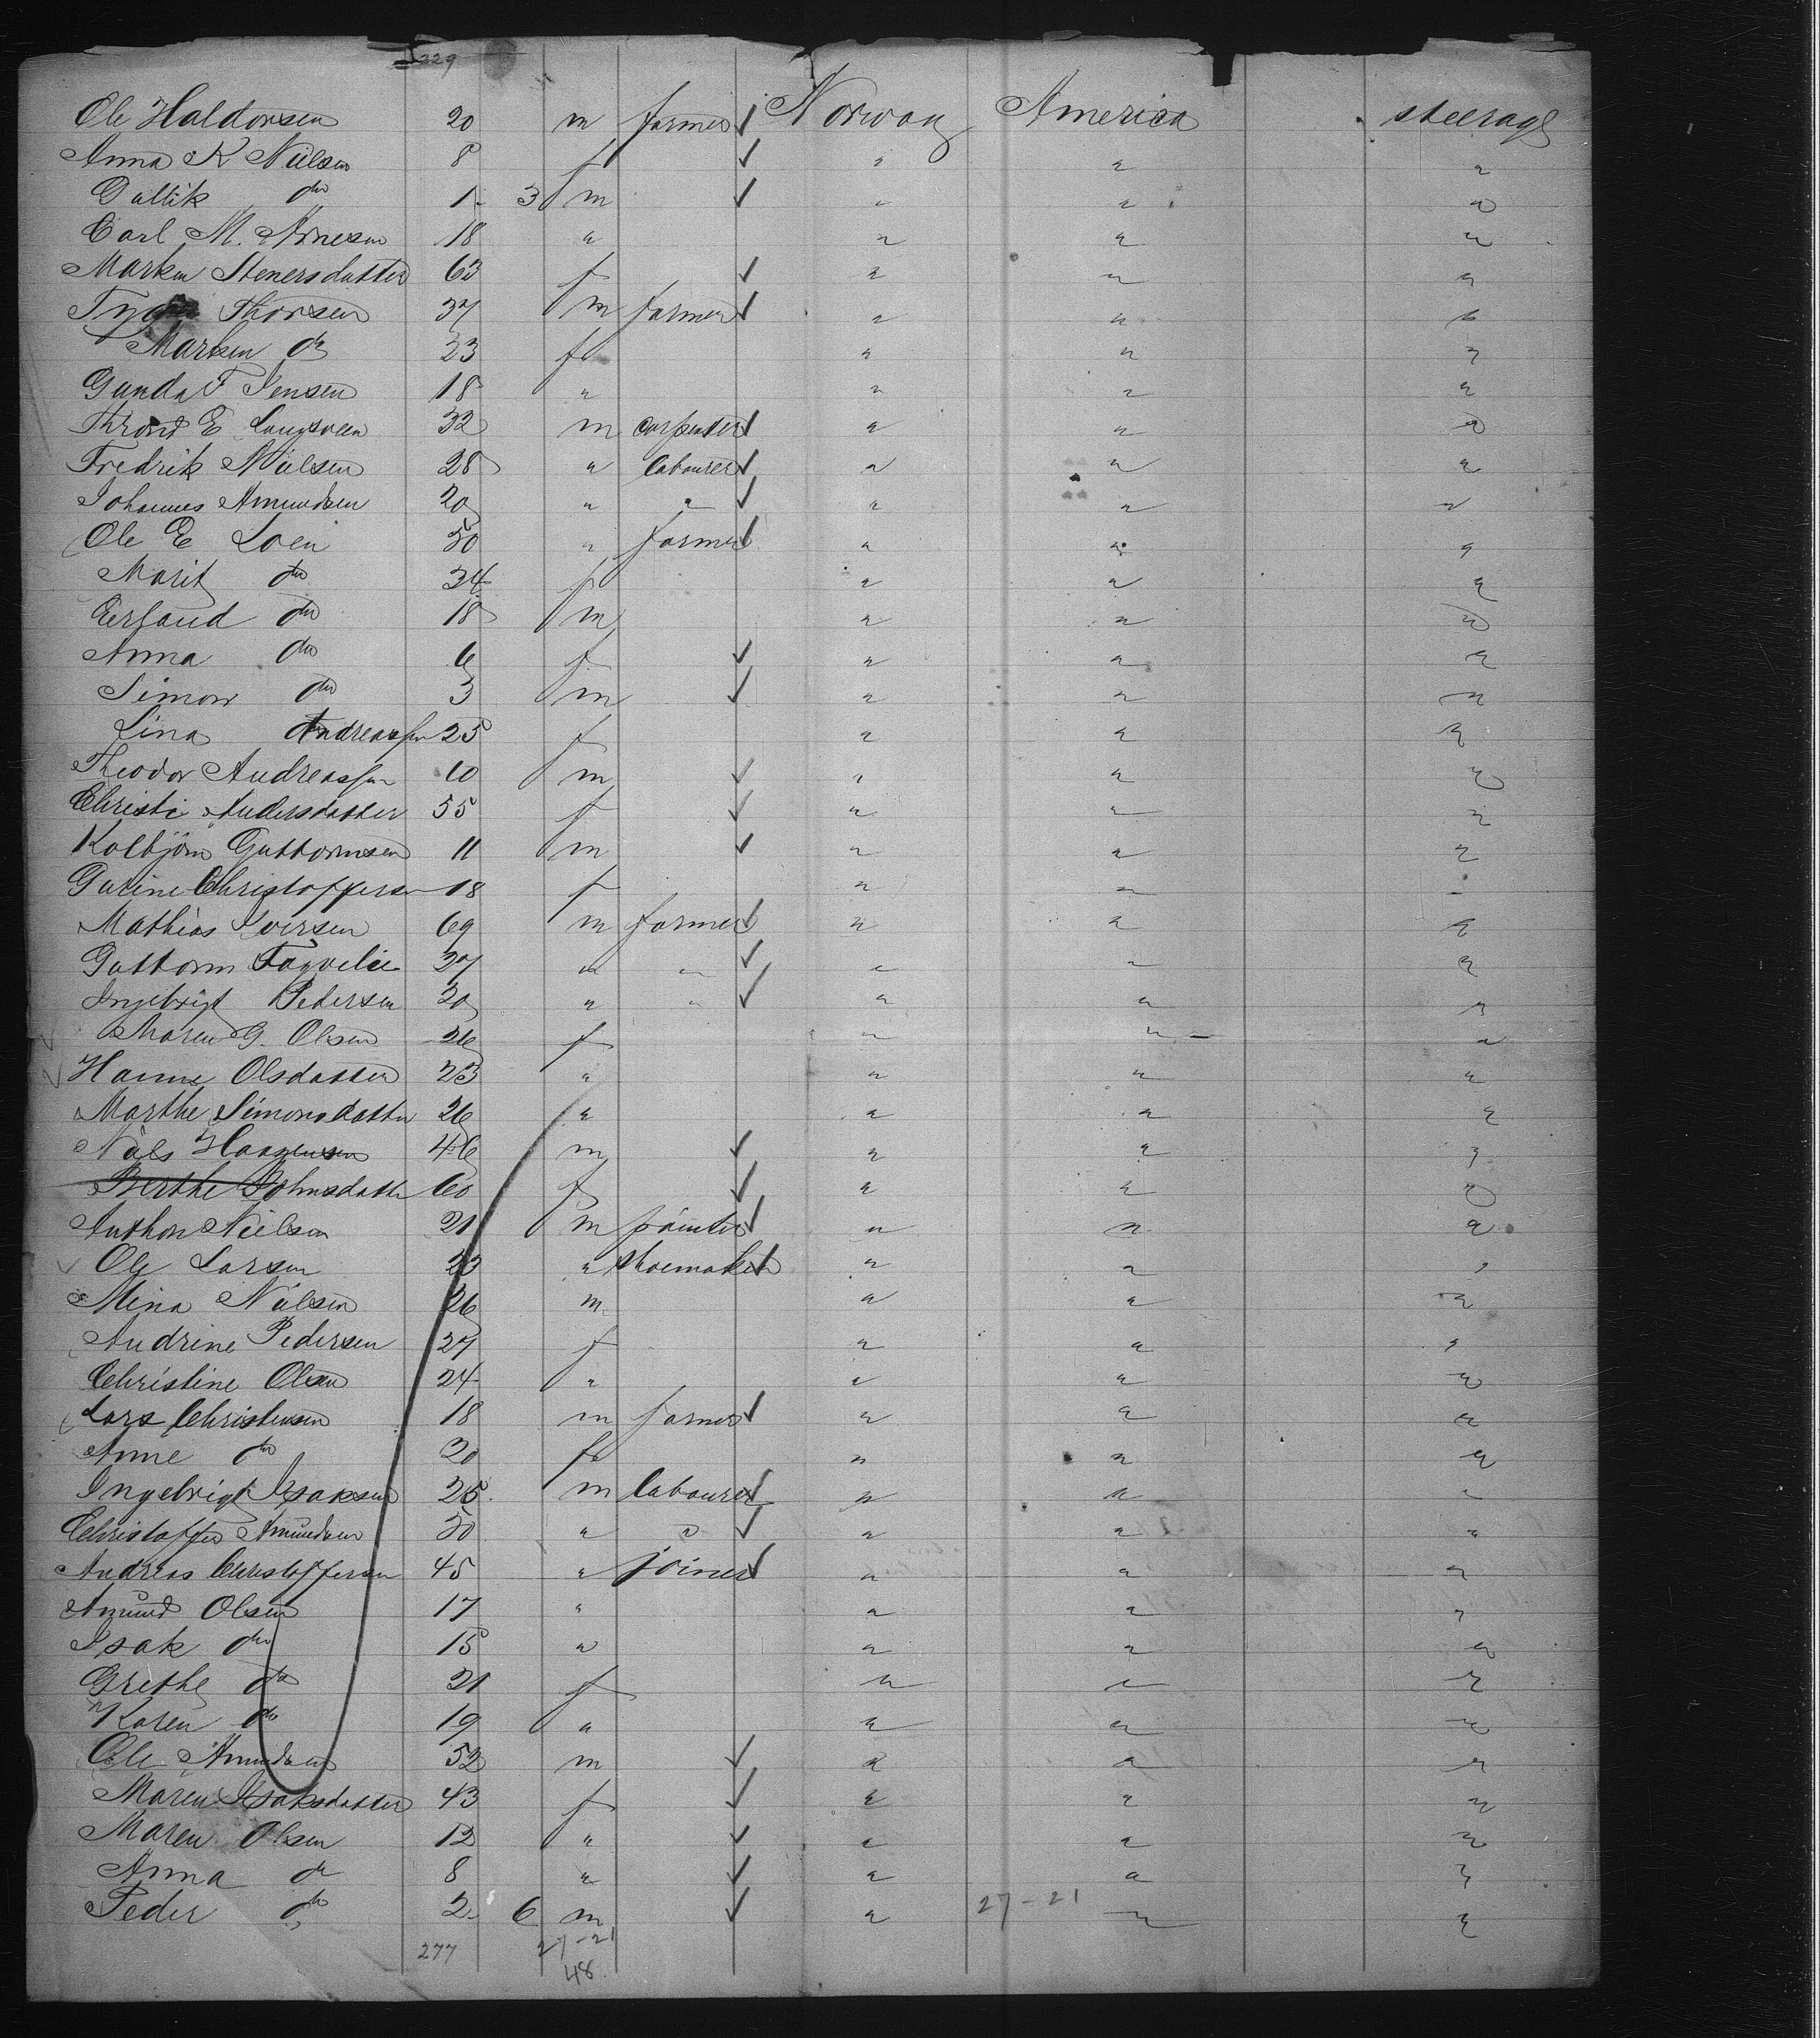 229
Ole Haldorsen 20 m farmer ✓ Norway America steerage
Anna K Nielsen 8 f ✓ " " "
Guttik do 1 3 m ✓ " " "
Carl M. Arnesen 18 " " " "
Marken Stenersdatter 63 f ✓ " " "
Thorsen 37 m farmer ✓ " " "
Marken do 23 f " " "
Gunda F Jensen 18 " " " "
Thrond E 32 m carpenter ✓ " " "
Fredrik Nielsen 28 " labourer ✓ " " "
Johannes Amundsen 20 " " ✓ " " "
Ole E Loen 50 " farmer ✓ " " "
Marit do 34 f " " "
Erland do 18 m " " "
Anna do 6 f ✓ " " "
Simon do 3 m ✓ " " "
Lina Andreassen 25 f " " "
Theodor Andreassen 10 m ✓ " " "
Christi Andersdatter 55 f ✓ " " "
Kolbjörn Guttormsen 11 m ✓ " " "
Gurine Christoffersen 18 f " " "
Mathias Iversen 69 m farmer ✓ " " "
Guttorm Fagerlie 27 " " ✓ " " "
Ingebrigt Pedersen 20 " " ✓ " " "
Maren G. Olsen 26 f " " "
Hanne Olsdatter 23 " " " "
Marthe Simonsdatter 26 " " " "
Niels Haagensen 46 m ✓ " " "
Berthe Johnsdatter 60 f ✓ " " "
Anthon Nielsen 21 m painter ✓ " " "
Ole Larsen 23 " shoemaker ✓ " " "
Mina Nielsen 26 m " " "
Andrine Pedersen 27 f " " "
Christine Olsen 24 " " " "
Lars Christensen 18 m farmer ✓ " " "
Anne do 20 f " " "
Ingebrigt Isaksen 25 m labourer ✓ " " "
Christoffer Amundsen 50 " " ✓ " " "
Andreas Christoffersen 45 " joiner ✓ " " "
Amund Olsen 17 " " " "
Isak do 15 " " " "
Grethe do 21 f " " "
Karen do 19 " " " "
Ole Amundsen 52 m ✓ " " "
Maren Isaksdatter 43 f ✓ " " "
Maren Olsen 12 " ✓ " " "
Anna do 8 " ✓ " " "
Peder do 2 6 m ✓ " 27-21 " "
277 27-21
48